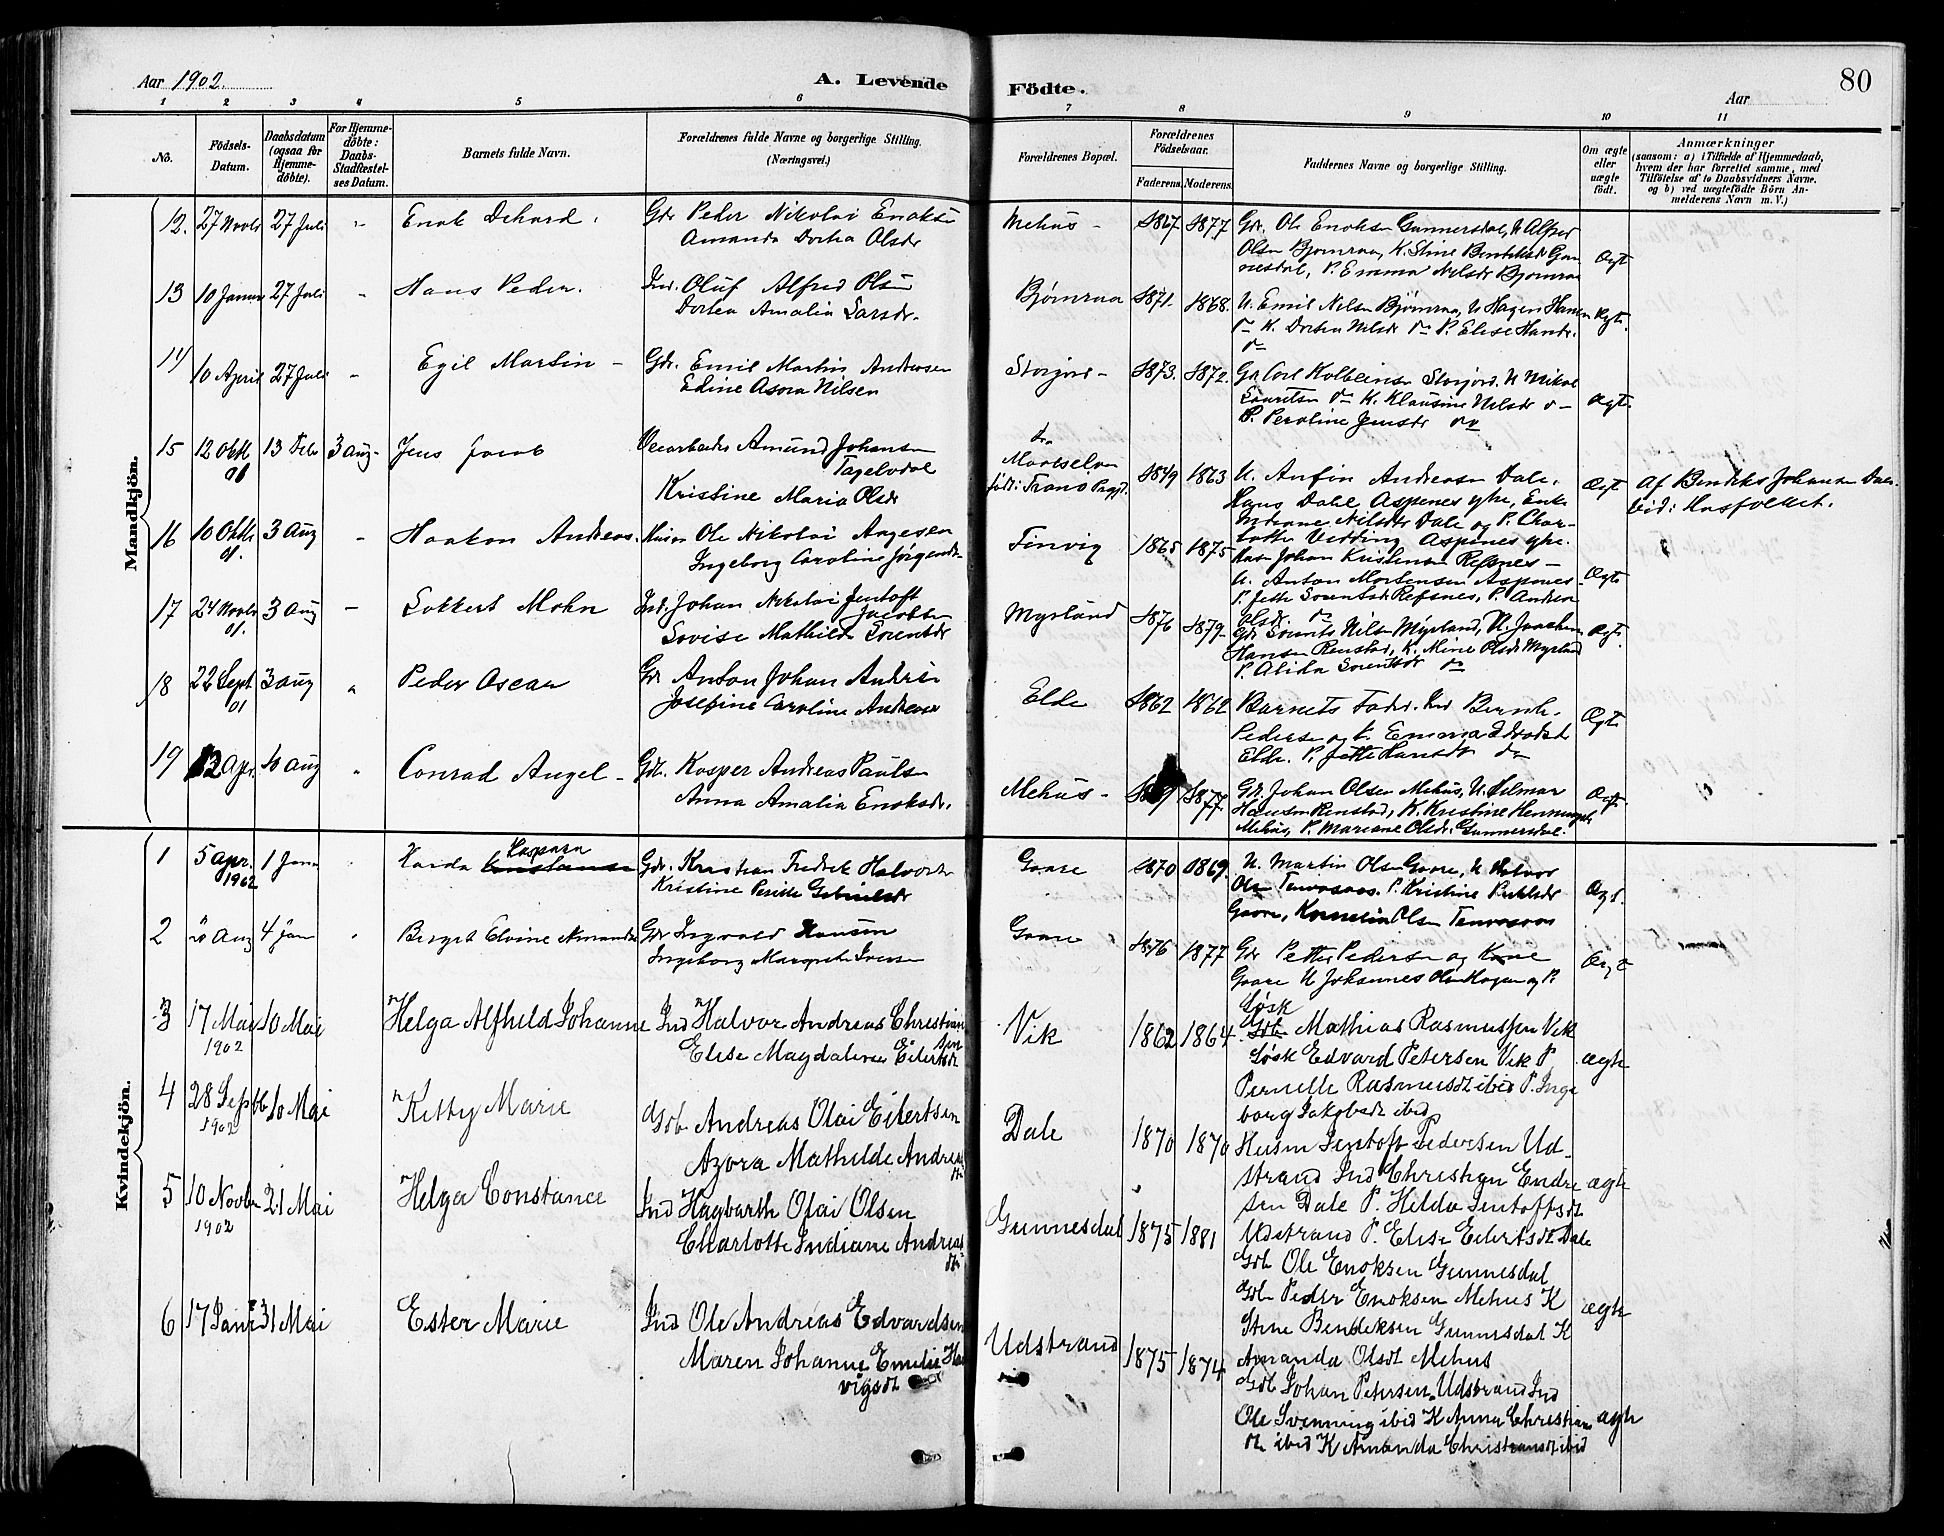 Aar 1902.
A. Levende Födte.
Aar
80
1 2 3 4 5 6 7 8 9 10 11
No.
Födsels-Datum.
Daabsdatum (ogsaa for Hjemme-döbte).
For Hjemme-döbte: Daabs-Stadfæstel-ses Datum.
Barnets fulde Navn.
Forældrenes fulde Navne og borgerlige Stilling. (Næringsvei.)
Forældrenes Bopæl.
Forældrenes Födselsaar.
Faderens. Moderens.
Faddernes Navne og borgerlige Stilling.
Om ægte eller uægte født.
Anmærkninger
(saasom: a) i Tilfælde af Hjemmedaab,
hvem der har forrettet samme, med
Tilføielse af to Daabsvidners Navne,
og b) ved uægtefödte Börn An-
melderens Navn m. V.)
Mandkjön.
12. 27 Novbr 27 Juli " Enok Dehard. Gdr Peder Nikolai Enoksen
Amanda Dortea Olsdr
Mehus - 1867 1877 Gdr. Ole Enoksen Gunnersdal, U Alfred
Olsen Bjørnraa, K. Stine Bendiksdr Gun
nesdal, P. Emma Nilsdr Bjørnraa
Ægt
13 10 Januar 27 Juli " Hans Peder. Ind. Oluf Alfred Olsen
Dortea Amalia Larsdr.
Bjørnraa 1871. 1868. U. Emil Nilsen Bjørnraa, U Hagen Hansen
do K. Dortea Nilsdr do P. Elise Hansdr.
do
Ægt.
14 10 April 27 Juli " Egil Martin - Gdr. Emil Martin Andersen
Edine Asora Nilsen
Storjord - 1873. 1872. Gdr Carl Kolbeinsen Storjord. U Mikal
Lauritsen do K. Klausine Nilsdr do
P. Peroline Jensdr do
Ægt.
15 12 Oktbr 01 13 Febr 3 Aug- Jens Jacob
Veiarbeider Amund Johansen
Tagelvdal
Kristine Maria Olsdr
fra
Maalselven
født i Tranø Prgjd.
1849 1863 U. Anfin Andreasen Dale,
Hans Dahl Aspenes ytre, Enke
Mariane Nilsdr Dale og P. Char-
lotte Vedding Aspenes ytre.
Ægt Af Bendiks Johansen Dale
vid: Husfolket.
16 10 Oktbr 01. 3 Aug - Haakon Andreas. Husm Ole Nikolai Angesen
Ingeborg Caroline Jørgensdr
Finvig 1865 1875 Husm Johan Kristensen Refsnes -
U. Anton Mortensen Aspenes -
P. Jette Sorensdr Refsnes, P. Andrea
Olsdr. do
Ægt
17 24 Novbr 01. 3 Aug - Lokkert Mohn Ind. Johan Nikolai Jentoft
Jacobsen
Lovise Mathilda Lorentsdr
Myrland 1876 1879 Gdr Lorents Nilsen Myrland, U. Joachim
Hansen Renstad, K. Mine Olsdr Myrland
P. Alida Lorentsdr do
Ægt.
18 22 Sept 01 3 Aug " Peder Oscar Gdr Anton Johan Andrias
Josefine Caroline Andreasdr
Elde 1862 1862 Barnets Fader. Ind Bernh.
Pedersen og K. Emma Edvardsdr
Elde. P. Jette Hansdr do
Ægt.
19 12 Apr. 10 Aug " Conrad Angel - Gdr. Kasper Andreas Paulsen
Anna Amalia Enoksdr.
Mehus - 1877. Gdr. Johan Olsen Mehus, U. Hilmar
Hansen Renstad, K. Kristine Henningsdr
Mehus, P. Mariane Olsdr. Gunnersdal.
Ægt.
Kvindekjön.
1 5 Apr. 1902 1 Janr " Harda Kaspara Gdr. Kristian Fredrik Halvorsen
Kristine Perikke Gabrielsdr
Gaare 1870 1869. U. Martin Olsen Gaare, U Halvor
Olsen Tennvasaas. P. Kristine
Gaare, Kornelia Olsen Tennvasaas
Ægt.
2 20 Aug 4 Jan " Birgit Elvine Amanda Gdr Ingvald Hansen
Ingeborg Margrete Iversen
Gaare 1876 1877 Gdr Petter Pedersen og Kone
Gaare U Johannes Olsen Hagen og P.
Ægt
3 17 Mai 1902 10 Mai Helga Alfhild Johanne Ind Halvor Andreas Christian
sen
Elise Magdalene Eilertsdt
Vik 1862 1864 Løsk
Mathias Rasmussen Vik
Løsk Edvard Petersen Vik P
Pernelle Rasmusdt ibid P. Inge
borg Jakobsdt ibid
ægte
4 28 Septb 1902 10 Mai Kitty Marie Gdb Andreas Olai Eilertsen
Azora Mathilde Andreas
dt.
Dale 1870 1870 Husm Jentoft Pedersen Ud-
strand Ind Christian Endre
sen Dale P. Hilda Jentoftsdt
Udstrand P. Elise Eilertsdt Dale
ægte
5 10 Novbr 1902 21 Mai Helga Constance Ind Hagbarth Olai Olsen
Charlotte Indiane Andreas
dt.
Gunnesdal 1875 1881
Gdb Ole Enoksen Gunnesdal
Gdb Peder Enoksen Mehus K
Stine Bendiksen Gunnesdal K
Amanda Olsdt Mehus
ægte
6 17 Janr 31 Mai Ester Marie Ind Ole Andreas Edvardsen
Maren Johanne Emilie Ha
vigsdt
Udstrand 1875 1874
Gdb Johan Petersen Udstrand Ind
Ole Svenning ibid K Anna Christians
dt ibid K Amanda Christiansdt ibid
ægte